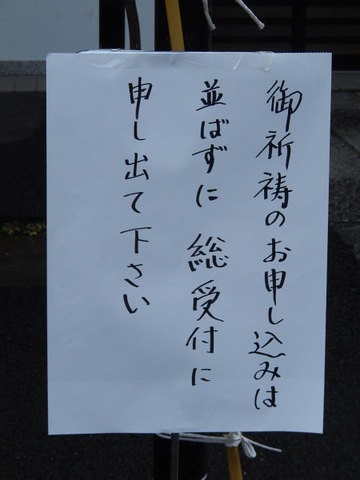 御祈祷のお申し込みは
並ばずに 総受付に
申し出て下さい